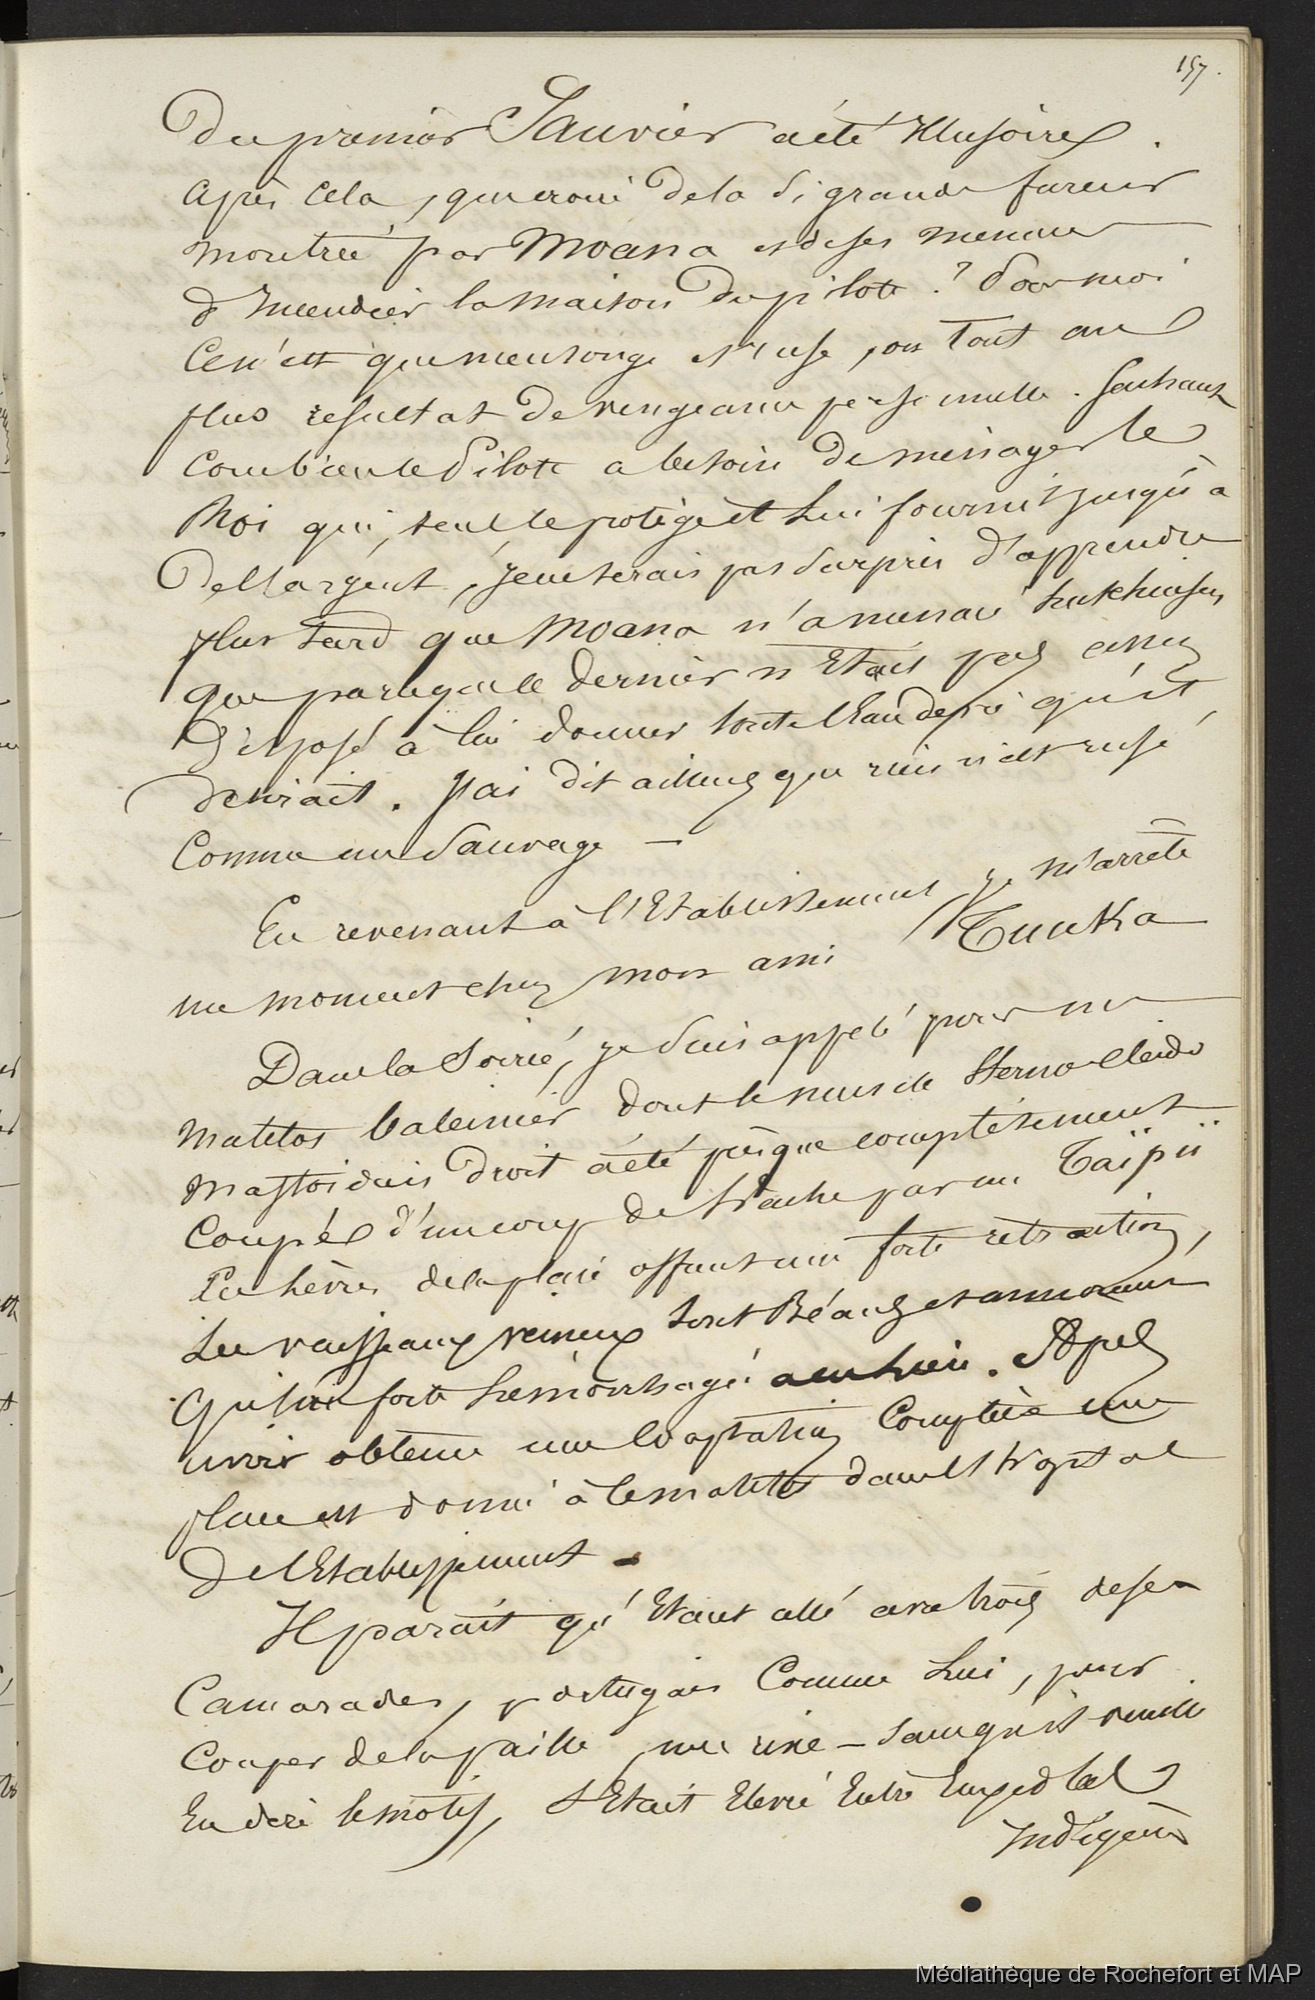 157.
Du premier Janvier a été Illusoire.
après cela, que croire de la si grande fureur
montrée par Moana et de ses menaces
d'Incendier la maison du pilote ? pour moi
Ce n'est que mensonge et ruse, ou tout au
plus resultat de vengeance personnelle. Sachant
combien le Pilote a besoin de ménager le
Roi qui, seul le protège et Lui fournit jusqu'à
De l'argent, je ne serais pas surpris d'apprendre
plus tard que Moana n'a menacé hutchinson
que parceque ce dernier n'Etait pas assez
Disposé à lui donner toute l'Eau de vie qu'il
desirait. J'ai dit ailleurs que rien n'est rusé
Comme un Sauvage —
En revenant à l'Etablissement je m'arrête
un moment chez mon ami
Dans la Soirée, je suis appelé pour un
matelos baleinier dont le muscle Sterno Cleido
mastoidien Droit a été presque complètement
Coupé d'un coup de hache par un Taïpii
Les lèvres de la plaie offrent une forte rétraction,
Les vaisseaux veineux sont Béants et annoncent
qu'une forte hémorrhagie a eu lieu. Après
avoir obtenu une Coaptation Complète une
place est donné à ce matelot dans l'hopital
De l'Etablissement.
Il parait qu'Etant allé avec trois de ses
Camarades, portugais Comme Lui, pour
Couper de la paille, une rixe — sans qu'il veuille
En dire le motif, s'Etait Elevée Entre Eux et les
Indigènes
Médiathèque de Rochefort et MAP